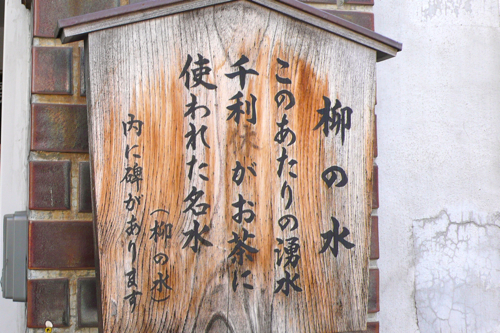 柳の水
このあたりの湧水
千利休がお茶に
使われた名水
(柳の水)
内に碑があります